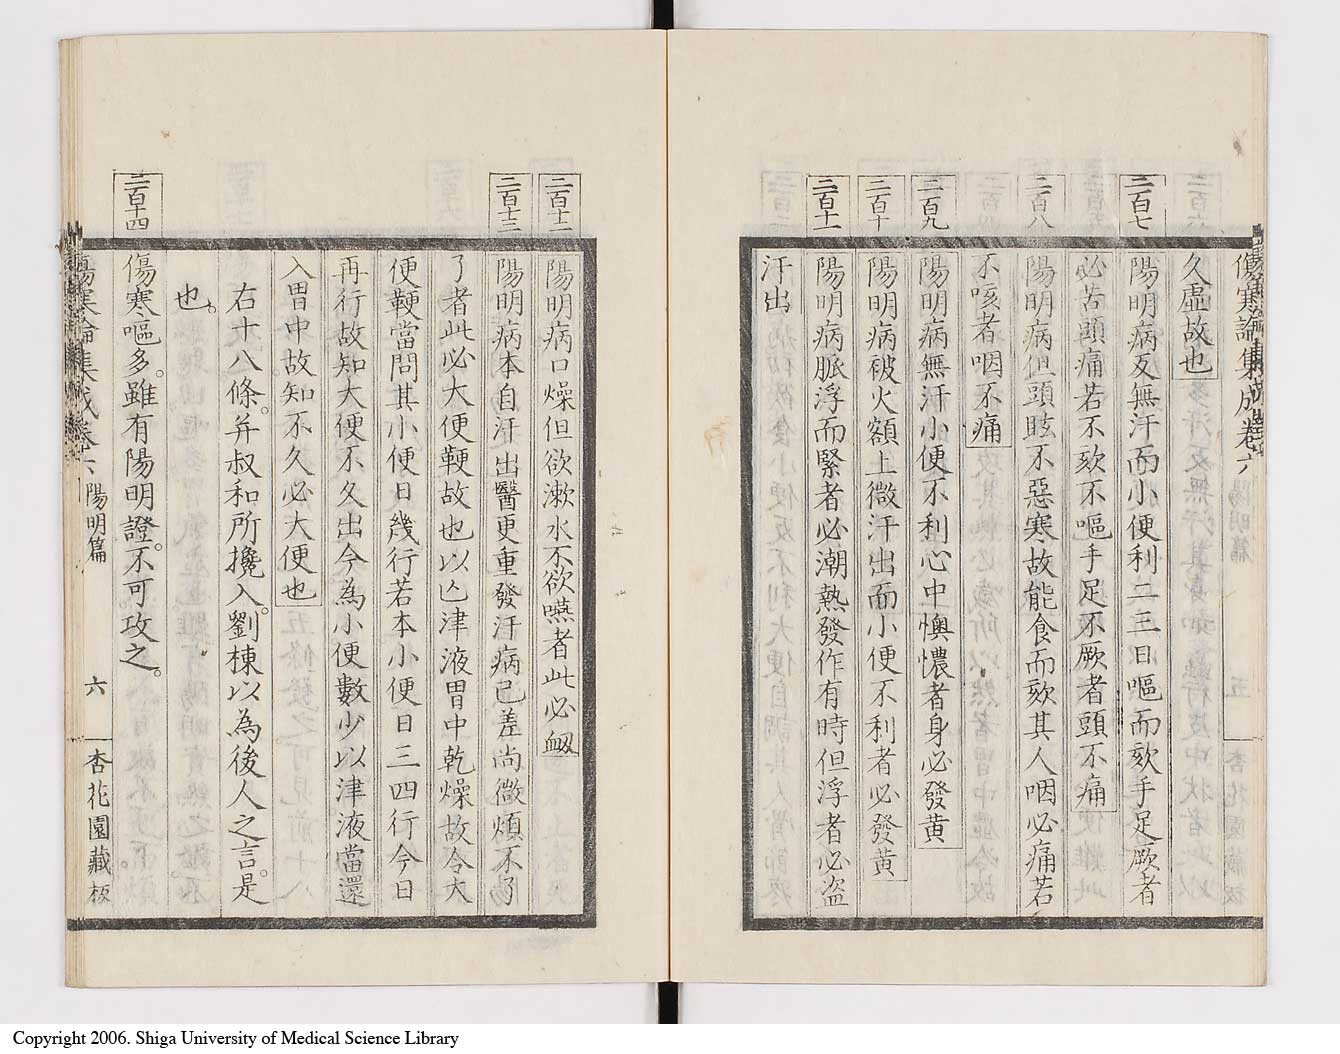 傷寒論集成卷六 陽明篇 五 杏花園藏板
久虛故也
二百七
陽明病反無汗而小便利二三日嘔而欬手足厥者
必苦頭痛若不欬不嘔手足不厥者頭不痛
二百八
陽明病但頭眩不惡寒故能食而欬其人咽必痛若
不咳者咽不痛
二百九
陽明病無汗小便不利心中懊憹者身必發黃
二百十
陽明病被火額上微汗出而小便不利者必發黃
二百十一
陽明病脈浮而緊者必潮熱發作有時但浮者必盜
汗出
二百十二
陽明病口燥但欲漱水不欲嚥者此必衂
二百十三
陽明病本自汗出醫更重發汗病已差尚微煩不了
了者此必大便鞕故也以亡津液胃中乾燥故令大
便鞕當問其小便日幾行若本小便日三四行今日
再行故知大便不久出今為小便數少以津液當還
入胃中故知不久必大便也
右十八條。并叔和所攙入。劉棟以為後人之言。是
也。
二百十四
傷寒嘔多。雖有陽明證。不可攻之。
傷寒論集成卷六 陽明篇 六 杏花園藏板
Copyright 2006. Shiga University of Medical Science Library